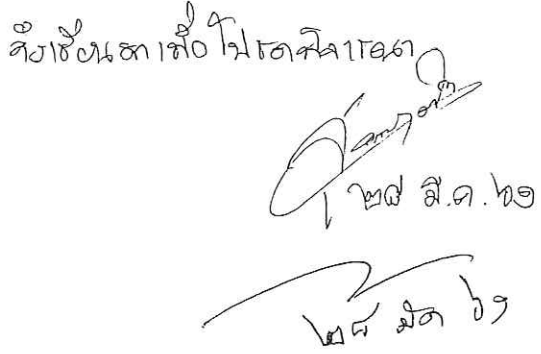 จึงเรียนมาเพื่อโปรดพิจารณา
๒๘ มี.ค. ๖๑
๒๘ มีค ๖๑